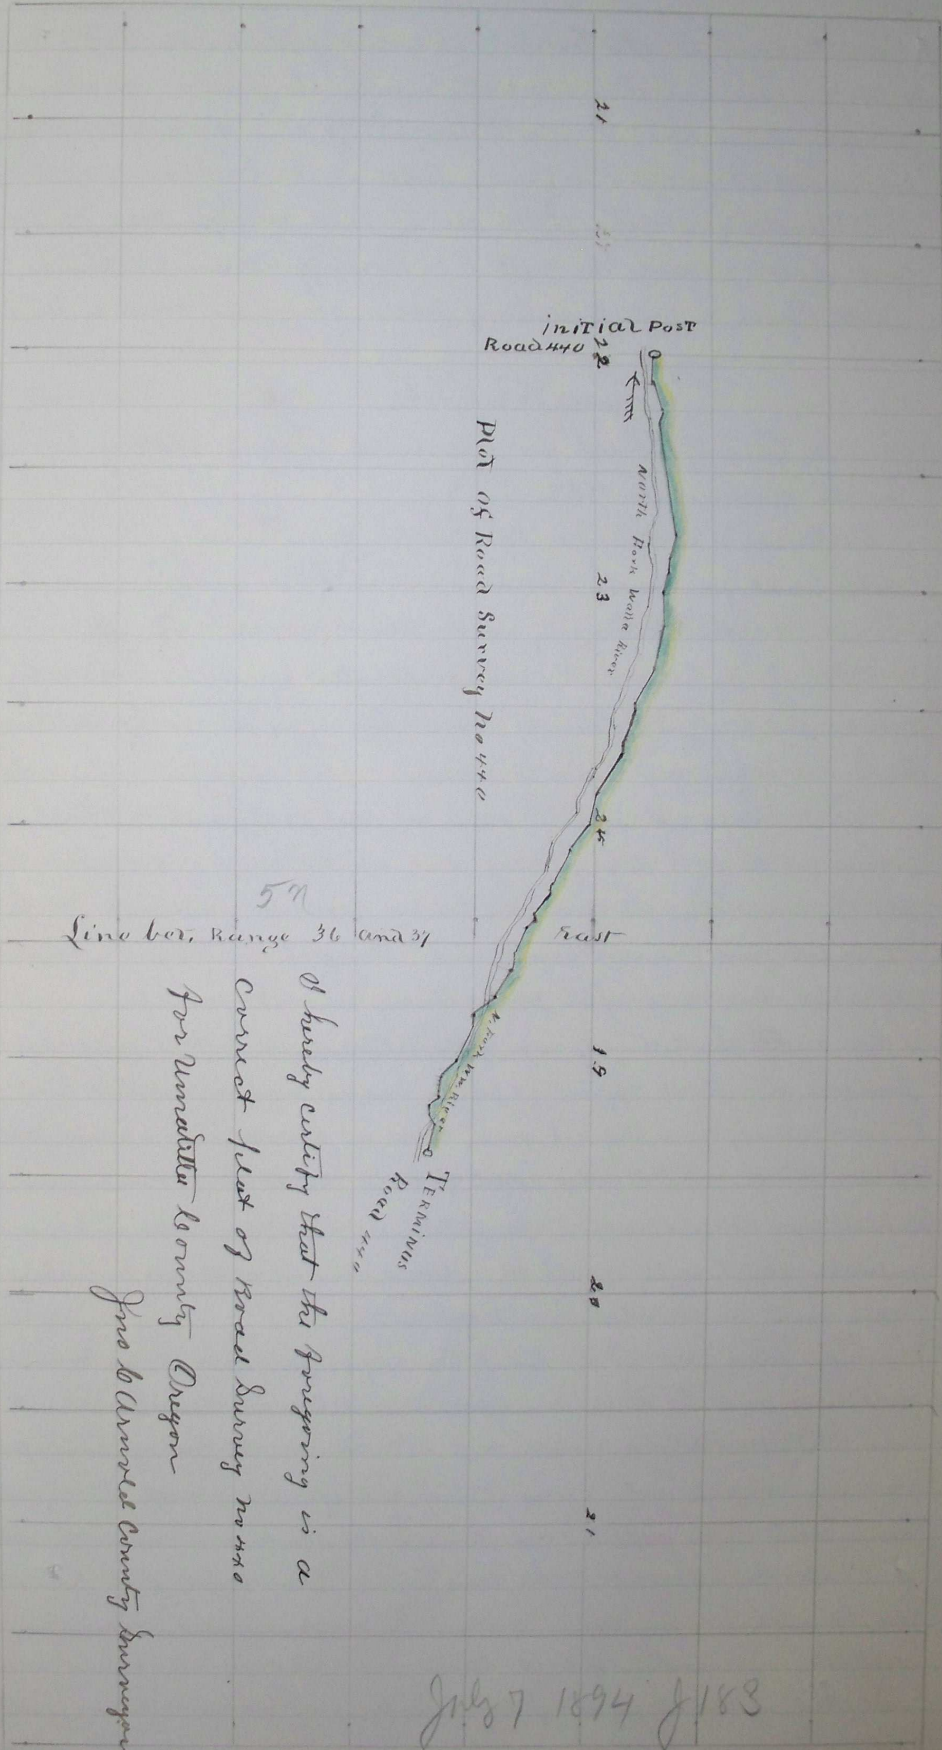 21
initial Post
Road 440
22
North Fork Walla River
23
Plot of Road Survey No 440
24
5 N
Line bet. Range 36 and 37 East
19
N. Fork WW River
Terminus
Road 440
20
21
I hereby certify that the foregoing is a
correct plat of Road Survey No 440
for Umatilla County Oregon
Jno C Arnold County Surveyor
July 7 1894 J 183